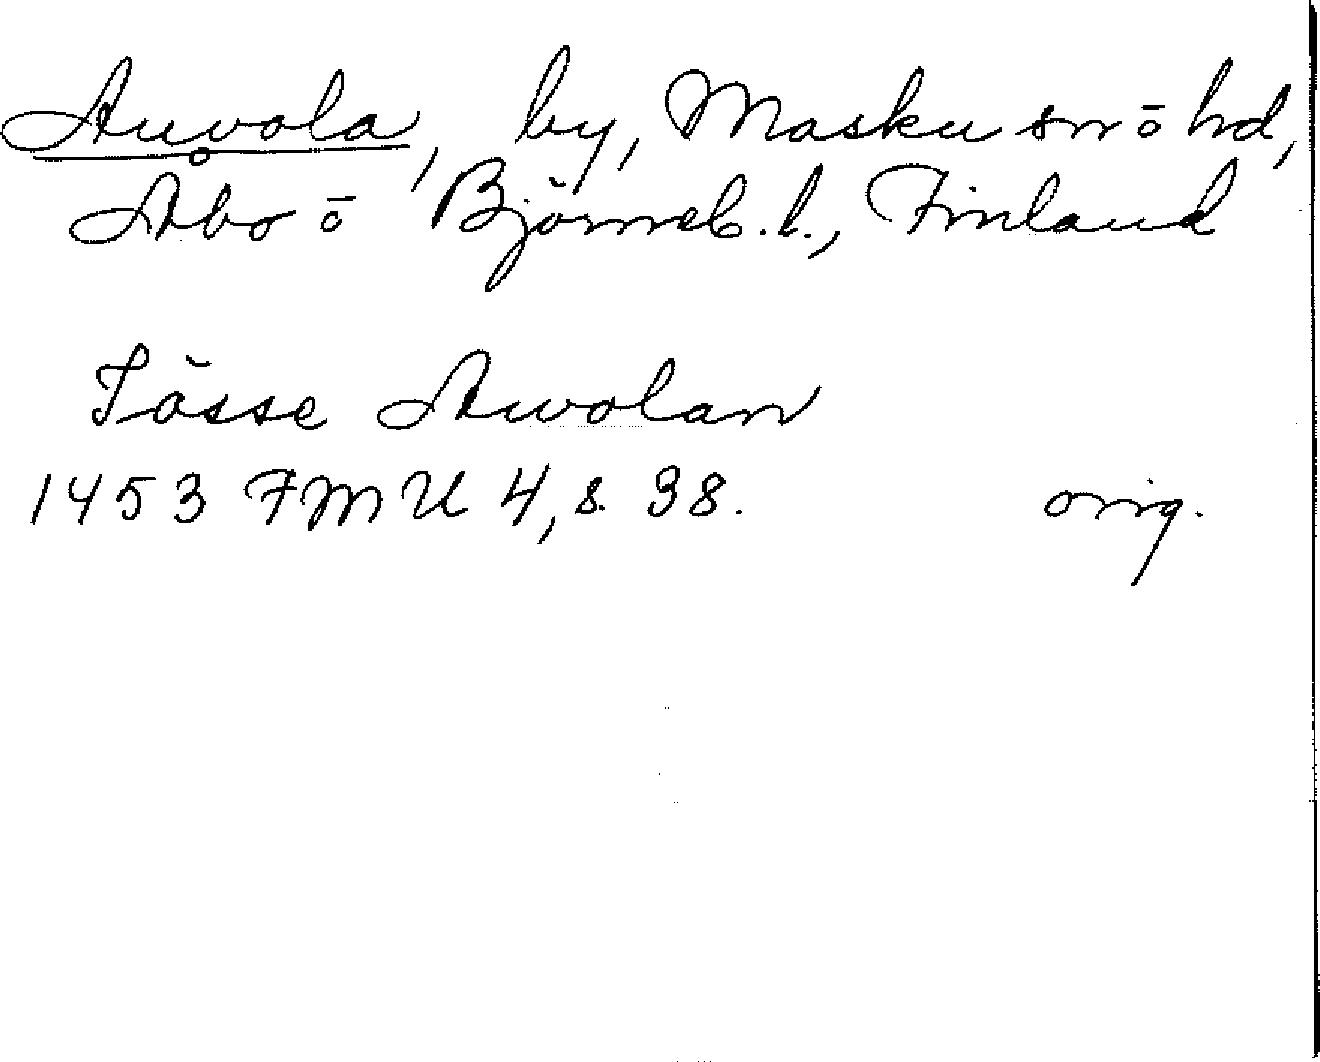 Auvola, by, Masku sn o hd,
Åbo o Björneb. l., Finland
Jösse Awolan
1453 FMU 4, s. 38. orig.